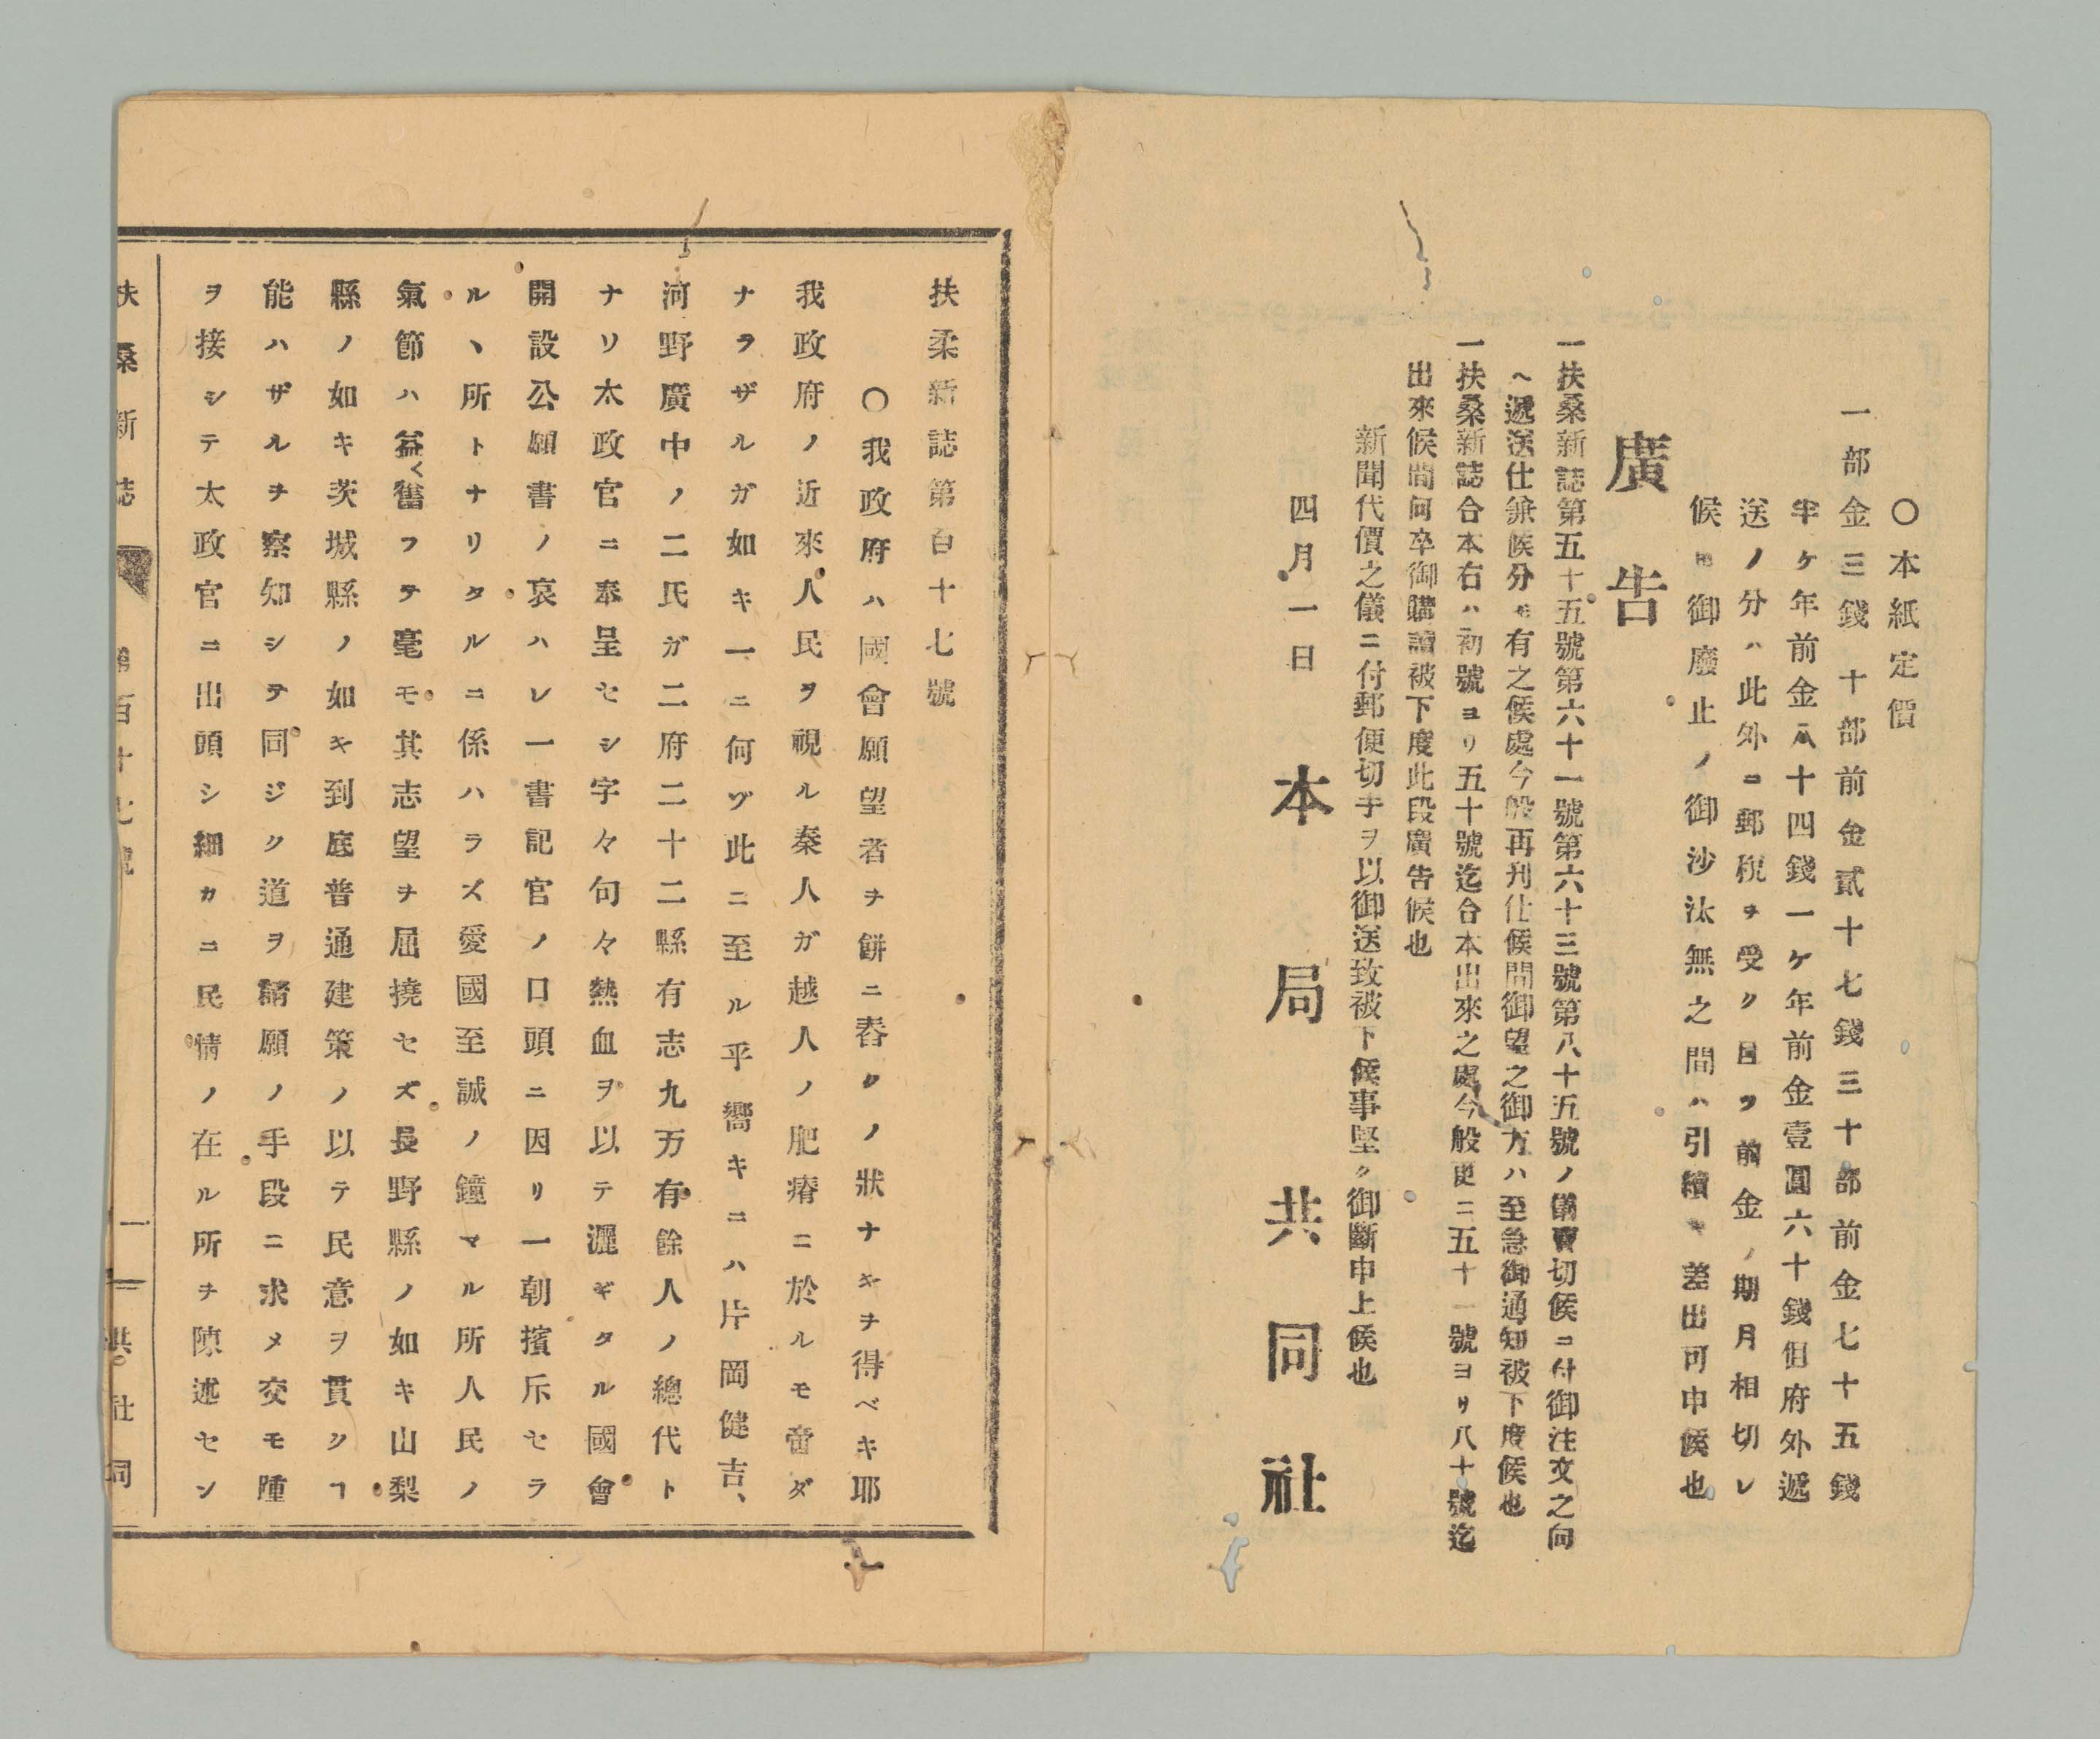 〇本紙定價
一部金三錢 十部前金貳十七錢三十部前金七十五錢
半ケ年前金八十四錢一ケ年前金壹圓六十錢但府外遞
送ノ分ハ此外ニ郵稅ヲ受ク且ツ前金ノ期月相切レ
候節御廢止ノ御沙汰無之間ハ引續キ差出可申候也
廣告
一扶桑新誌第五十五號第六十一號第六十三號第八十五號ノ儀賣切候ニ付御注文之向
へ遞送仕兼候分モ有之候處今般再刋仕候間御望之御方ハ至急御通知被下度候也
一扶桑新誌合本右ハ初號ヨリ五十號迄合本出來之處今般更ニ五十一號ヨリ八十號迄
出來候間何卒御購讀被下度此段廣告候也
新聞代價之儀ニ付郵便切手ヲ以御送致被下候事堅ク御斷申上候也
四月一日 本局 共同社
扶柔新誌第百十七號
〇我政府ハ國會願望者ヲ餅ニ舂クノ狀ナキヲ得ベキ耶
我政府ノ近來人民ヲ視ル秦人ガ越人ノ肥瘠ニ於ルモ啻ダ
ナラザルガ如キ一ニ何ヅ此ニ至ル乎嚮キニハ片岡健吉、
河野廣中ノ二氏ガ二府二十二縣有志九万有餘人ノ總代ト
ナリ太政官ニ奉呈セシ字々句々熱血ヲ以テ灑ギタル國會
開設公願書ノ哀ハレ一書記官ノ口頭ニ因リ一朝擯斥セラ
ルヽ所トナリタルニ係ハラズ愛國至誠ノ鐘マル所人民ノ
氣節ハ益〱奮フテ毫モ其志望ヲ屈撓セズ長野縣ノ如キ山梨
縣ノ如キ茨城縣ノ如キ到底普通建策ノ以テ民意ヲ貫クヿ
能ハザルヲ察知シテ同ジク道ヲ請願ノ手段ニ求メ交モ踵
ヲ接シテ太政官ニ出頭シ細カニ民情ノ在ル所ヲ陳述セン
扶桑新誌 第百十七號 一 共同社